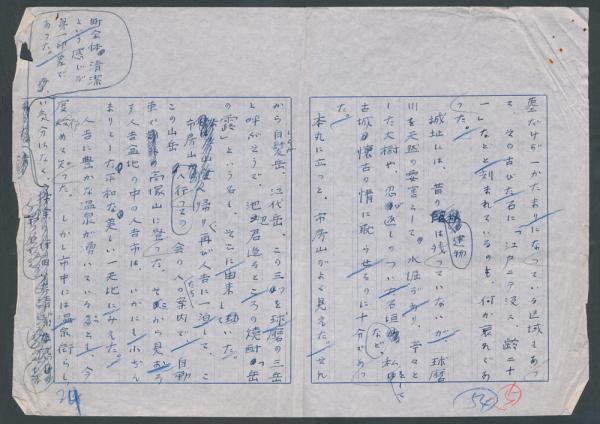 墓だけが一かたまりになっている区域もあっ
て、その古びた石に「江戸ニテ没ス 齢二十
一」などと刻まれているのも、何か哀れであ
った。
城址には、昔の建物は残っていないが、球磨
川を天然の要害として、水堀があり、亭々と
した大樹や、忍び返しのついた石垣など、私をして
古城懐古の情に耽らせるのに十分であっ
た。
本丸に立つと、市房山がよく見えた。せん
から白髪岳、江代岳、この三つを球磨の三岳
と呼ぶそうで、池辺君造るところの焼酎「岳
の露」という名も、そこに由来していた。
市房山から帰り、再び人吉に一泊して、こ
の山岳会の人たちの案内で、自動
車で高塚山に登った。そこから見おろ
す人吉盆地の中の人吉市は、いかにも小ぢん
まりとした平和な美しい一天地にみえた。
人吉に豊かな温泉が湧いていることも、今
度始めて知った。しかし市中には温泉街らし
い気分はなく、
町全体清潔
という感じが
第一印象で
あった。
54
5